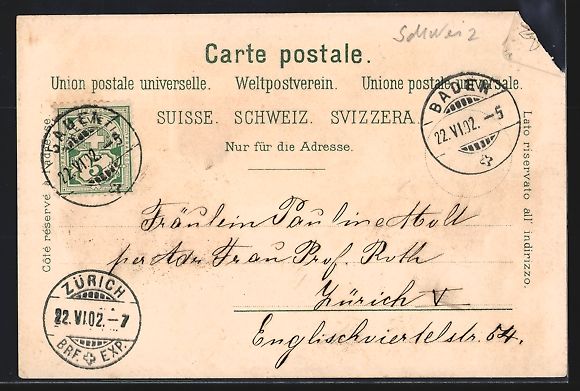 Schweiz
Carte postale.
Union postale universelle. Weltpostverein. Unione postale universale.
SUISSE. SCHWEIZ. SVIZZERA.
Nur für die Adresse.
Côté réservé à l'adresse.
Lato riservato all' indirizzo.
BADEN
22.VI.02.-5
BADEN
22.VI.02.-5
5
Fräulein Pauline Moll
per Adr. Frau Prof. Roth
Zürich V
Englischviertelstr. 54.
ZÜRICH
22.VI.02.-7
BRF. EXP.